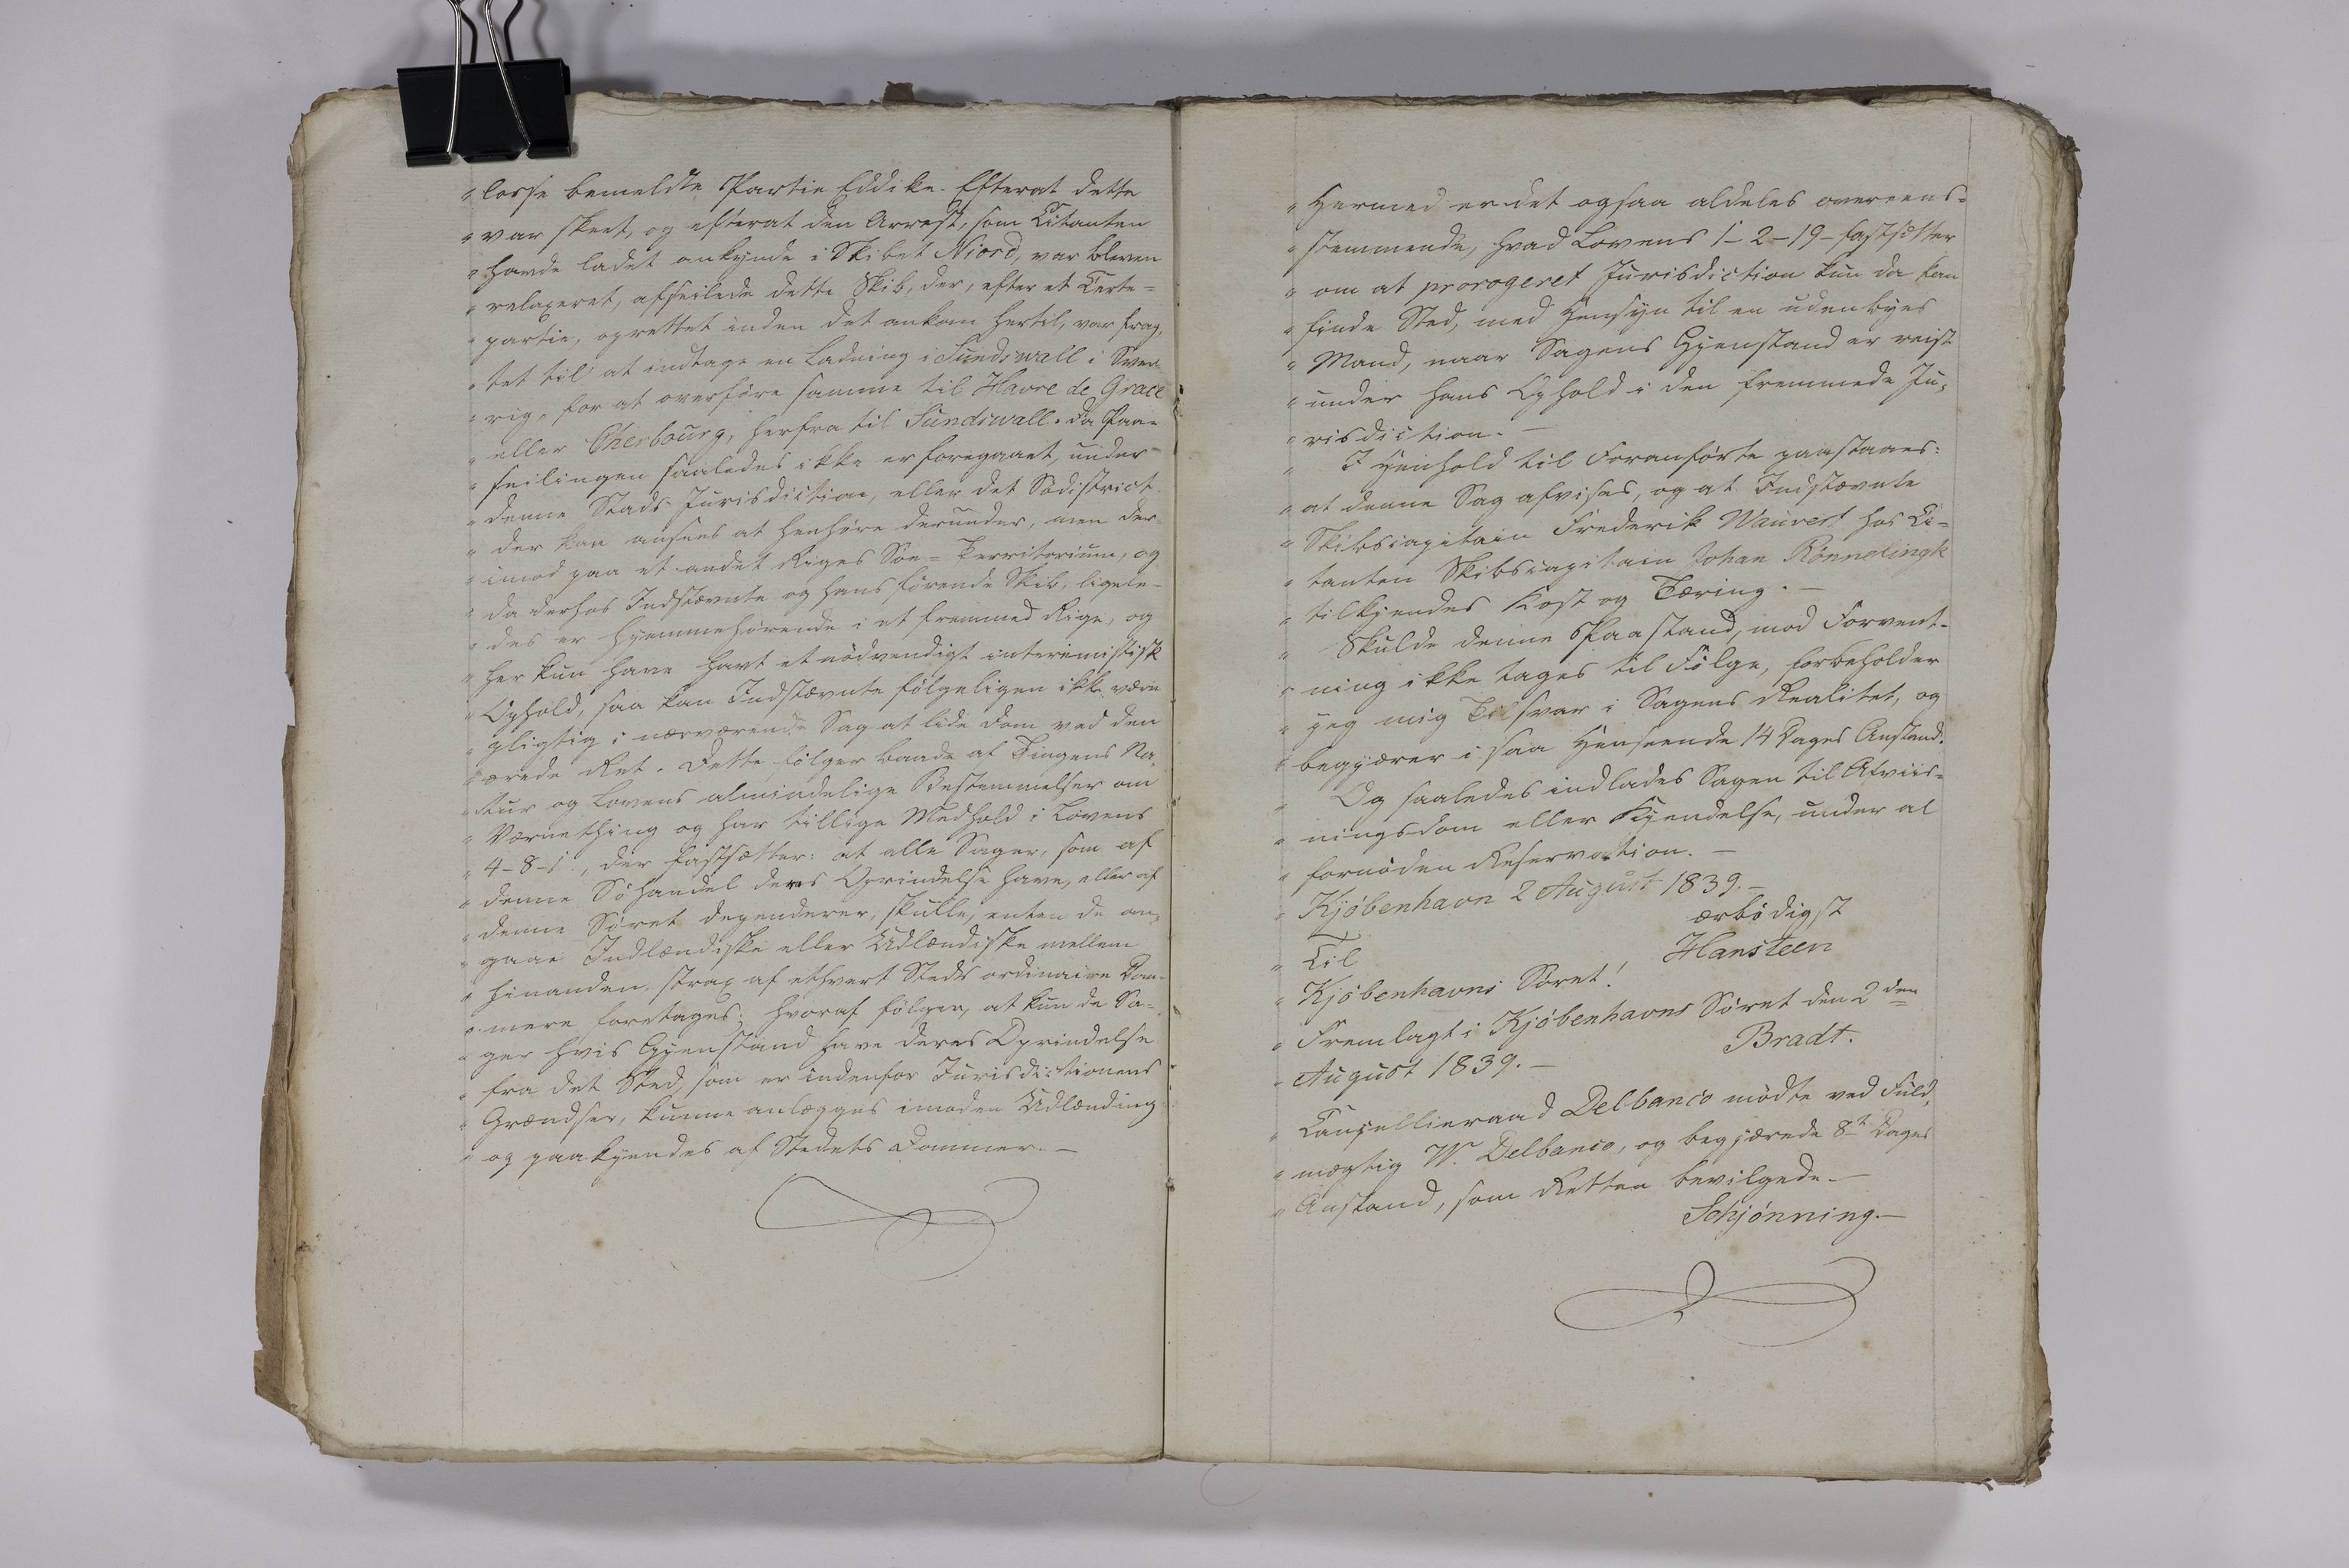 " losse bemeldte Partie Eddike. Efterat dette
" var skeet, og efterat den Arrest, som Citanten
" havde ladet ankynde i Skibet Niord, var bleven
" relaxeret, afseilede dette Skib, der, efter et Certe=
" partie, oprettet inden det ankom hertil, var frag,
" tet til at indtage en Ladning i Sundswall i Sver
" rig, for at overföre samme til Havre de Grace
" eller Cherbourg, herfra til Sundswall. Da Paa=
" seilingen saaledes ikke er foregaaet, under
" denne Stads Jurisdiction, eller det Södistrict
" der kan ansees at henhöre derunder, men der=
" imod paa et andet Riges Söe=Territorium, og
" da derhos Indstævnte og hans förende Skib, ligele=
" des er hjemmehörende i et fremmed Rige, og
" her kun have havt et nödvendigt interimistisk
" Ophold, saa kan Indstævnte fölgeligen ikke være
" pligtig i nærværende Sag at lide Dom ved den
" ærede Ret. Dette fölger baade af Tingens Na,
" tur og Lovens almindelige Bestemmelser om
" Værnething og har tillige Medhold i Lovens
" 4-8-1., der fastsætter: at alle Sager, som af
" denne Söhandel deres Oprindelse have, eller af
" denne Söret dependerer, skulle, enten de an,
" gaae Indlændiske eller Udlændiske mellem
" hinanden, strax af ethvert Steds ordinaire Dom=
" mere foretages; hvoraf fölger, at kun de Sa=
" ger hvis Gjenstand have deres Oprindelse
" fra det Sted, som er indenfor Jurisdictionens
" Grændser, kunne anlægges imod en Udlænding
" og paakjendes af Stedets Dommer. —
" Hermed er det ogsaa aldeles overeens=
" stemmende, hvad Lovens 1-2-19- fastsætter
" om at prorogeret Jurisdiction kun da kan
" finde Sted, med Hensyn til en udenbyes
" Mand, naar Sagens Gjenstand er reist
" under hans Ophold i den fremmede Ju,
" risdiction. —
" I Henhold til Foranförte paastaaes:
" at denne Sag afvises, og at Indstævnte
" Skibscapitain Frederik Wauvert hos Ci=
" tanten Skibscapitain Johan Rönnelingk
" tilkjendes Kost og Tæring. —
" Skulde denne Paastand, mod Forvent=
" ning ikke tages til Fölge, forbeholder
" jeg mig Tilsvar i Sagens Realitet, og
" begjærer i saa Henseende 14 Dages Anstand.
" Og saaledes indlades Sagen til Afviis=
" ningsdom eller Kjendelse, under al
" fornöden Reservation. —
" Kjöbenhavn 2 August 1839. —
ærbödigst
" Til
Hansteen
" Kjöbenhavns Söret!
" Fremlagt i Kjöbenhavns Söret den 2den
" August 1839. —
Bradt.
" Cancellieraad Delbanco mödte ved Fuld,
" mægtig W. Delbanco, og begjærede 8te Dages
" Anstand, som Retten bevilgede. —
Schjönning. —